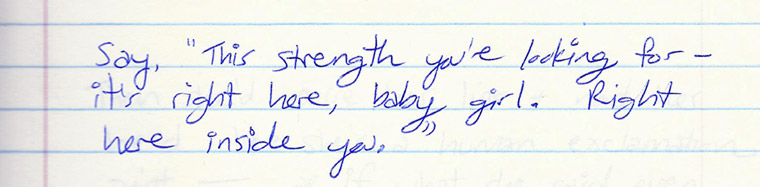 Say, "This strength you're looking for –
it's right here, baby girl. Right
here inside you."